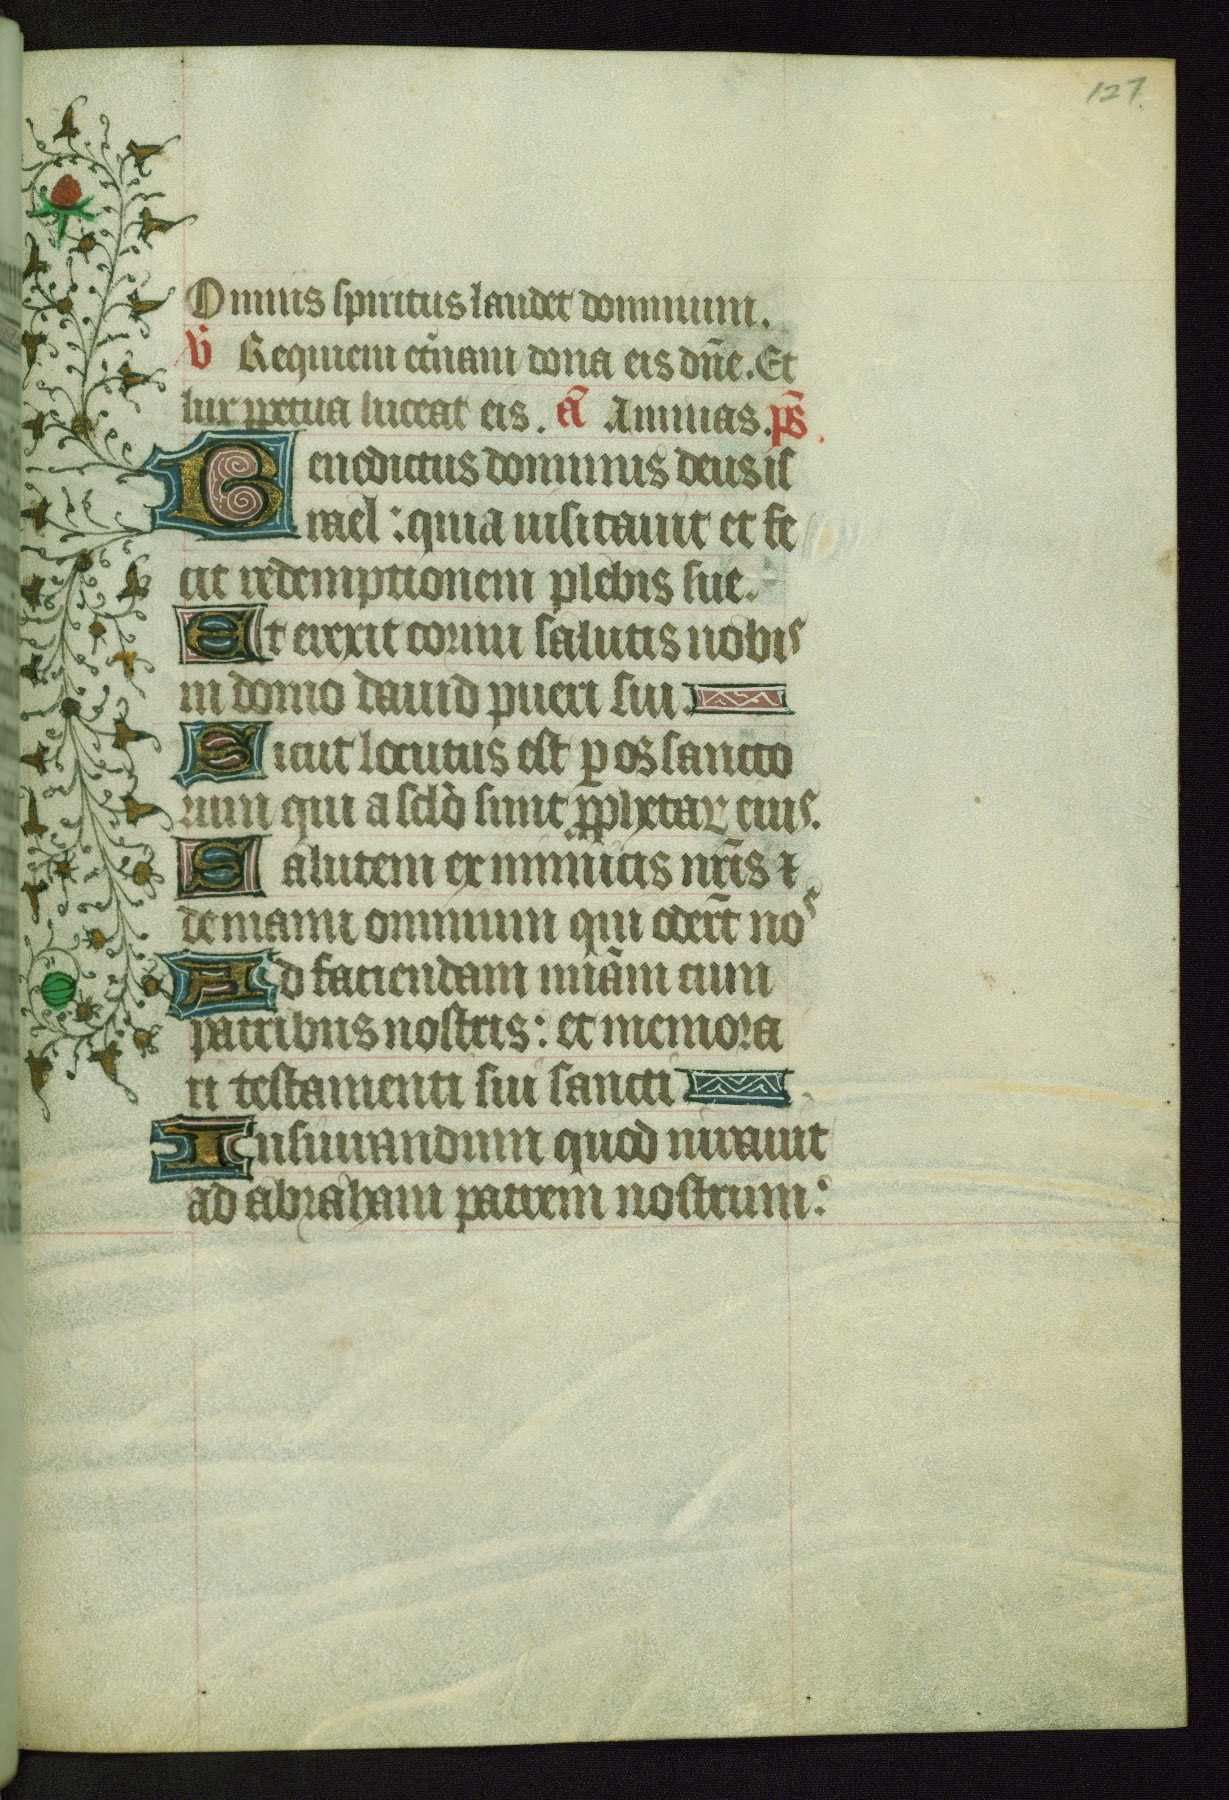 127
Omnis spiritus laudet dominum.
V̄ Requiem et̄nam dona eis dn̄e. Et
lux ꝑpetua luceat eis. ā Animas. ps̄.
Benedictus dominus deus is
rael: quia uisitauit et fe
cit redemptionem plebis sue.
Et erexit cornu salutis nobis
in domo dauid pueri sui.
Sicut locutus est ꝑ os sancto
rum qui a sc̄lo sunt ꝓphetaꝝ eius.
Salutem ex inimicis nr̄is ⁊
de manu omnium qui oder̄t nos
Ad faciendam mīam cum
patribus nostris: et memora
ri testamenti sui sancti
Iusiurandum quod iurauit
ad abraham patrem nostrum: